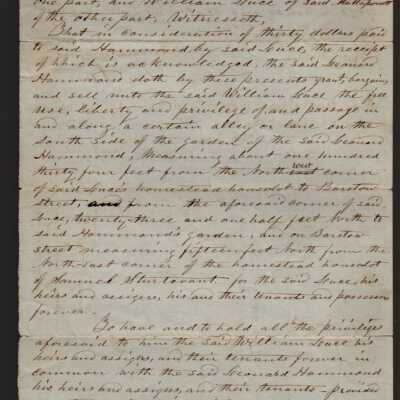 one part, and William Luce of said Mattapoisett
of the other part, Witnesseth,
That in consideration of thirty dollars paid
to said Hammond by said Luce, the receipt
of which is acknowledged, the said Leonard
Hammond doth by these presents grant, bargain,
and sell unto the said William Luce the free
use, liberty and privilege of, and passage in
and along a certain alley or lane on the
south side of the garden of the said Leonard
Hammond, measuring about one hundred
thirty four feet from the North west corner
of said Luce's homestead houselot to Barstow
street, and from the aforesaid corner of said
Luce, twenty-three and one half feet North to
said Hammond's garden, and on Barstow
street measuring fifteen feet North from the
North-east corner of the homestead houselot
of Sturtevant for the said Luce, his
heirs and assigns, his and their tenants and possessors
forever.
To have and to hold all the privileges
aforesaid to him the said William Luce his
heirs and assigns, and their tenants forever in
common with the said Leonard Hammond
his heirs and assigns, and their tenants – provided